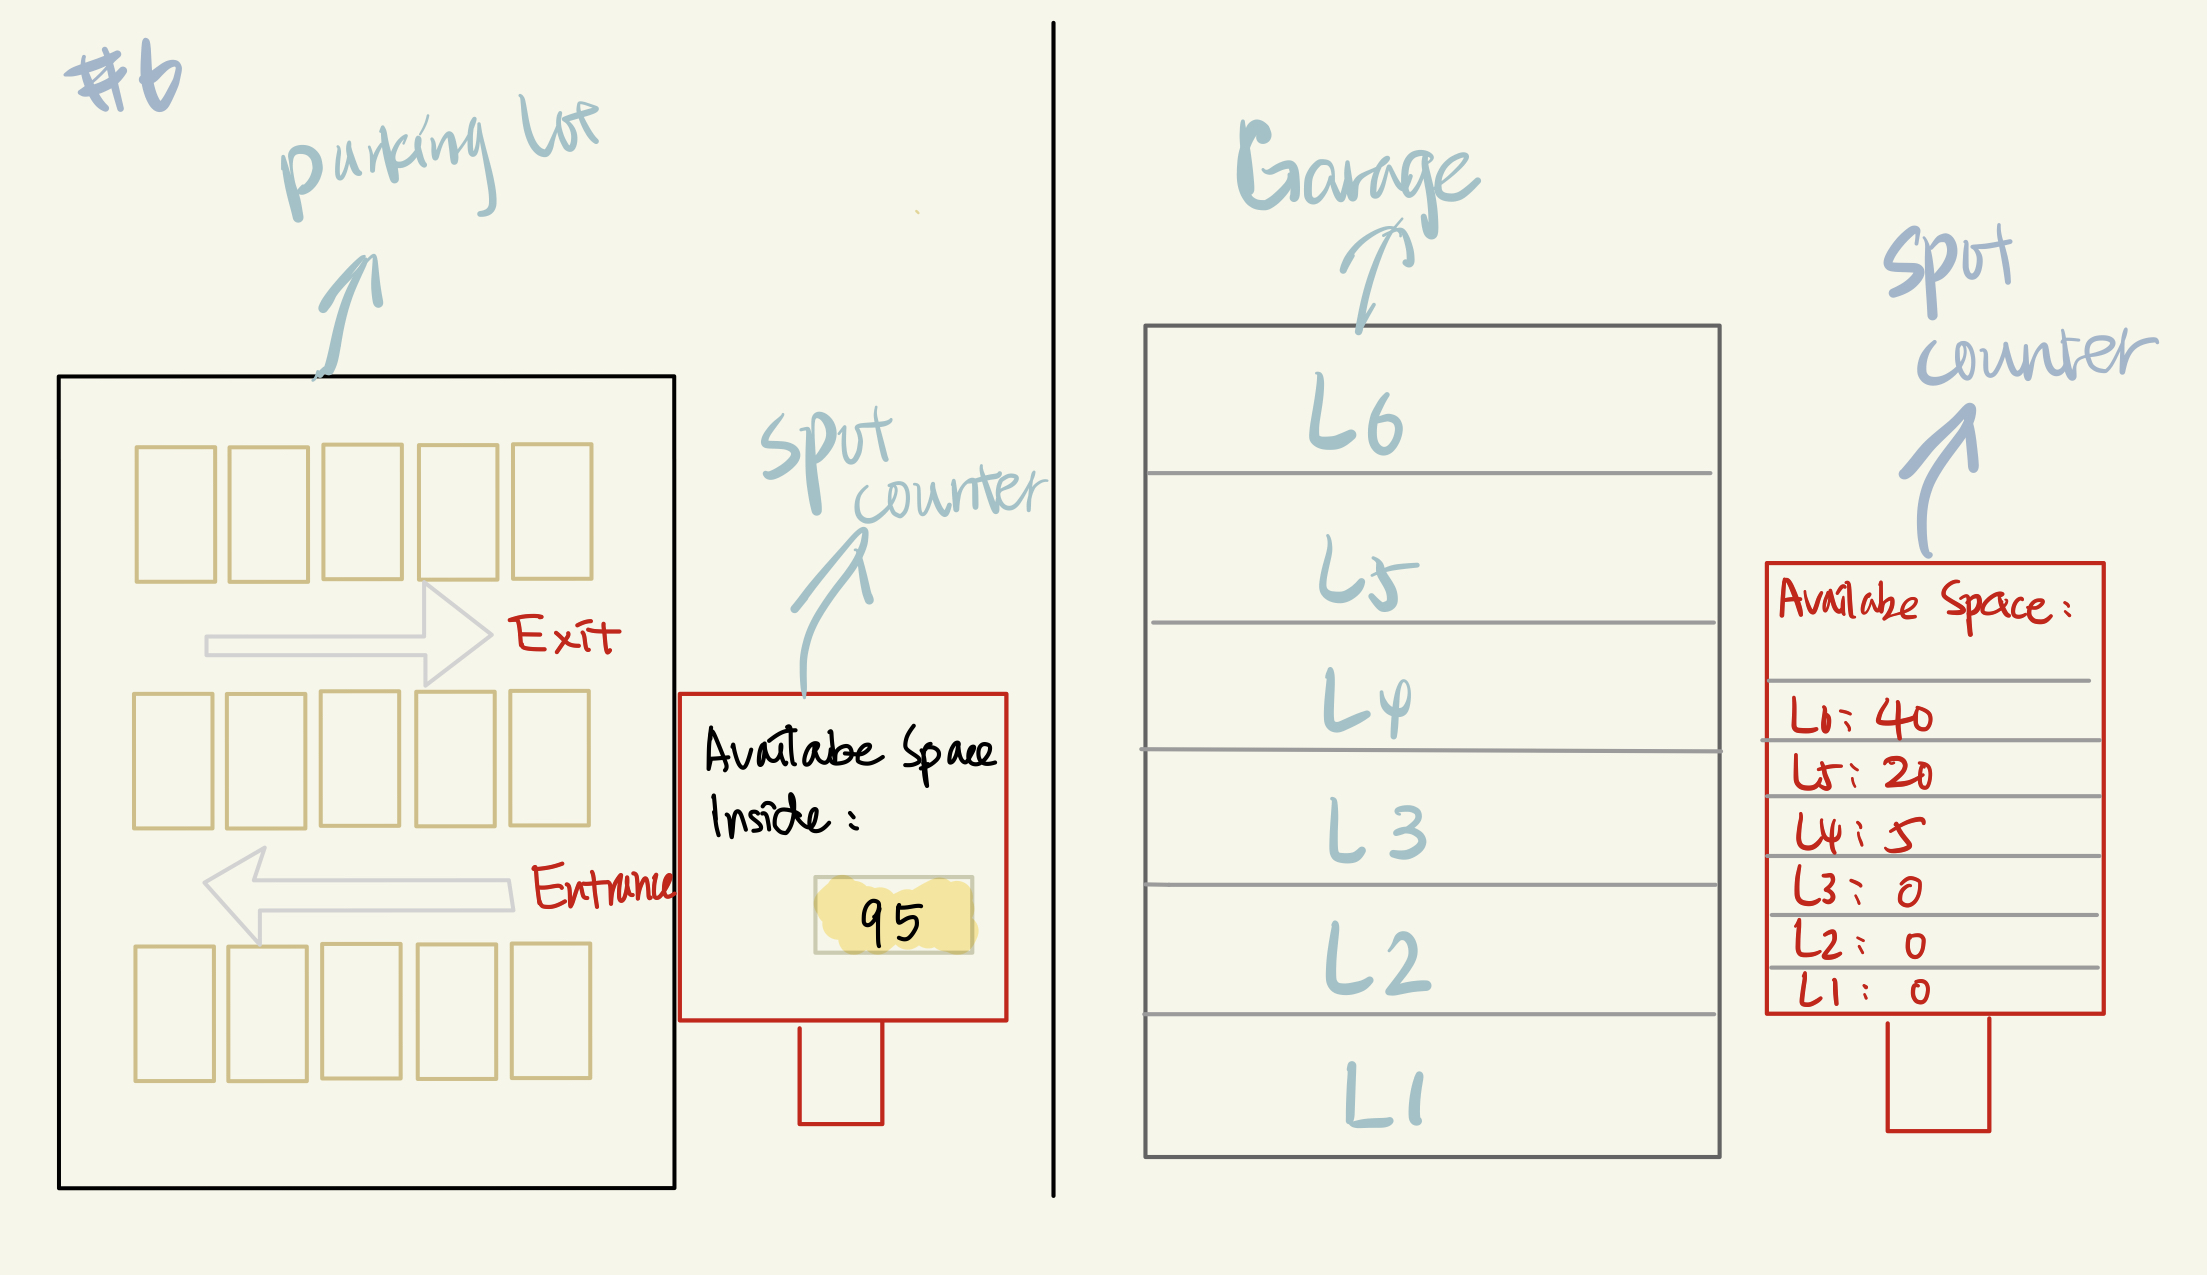 #6
parking lot
Exit
Entrance
spot
counter
Availabe Space
Inside:
95
Garage
L6
L5
L4
L3
L2
L1
spot
counter
Availabe Space:
L6: 40
L5: 20
L4: 5
L3: 0
L2: 0
L1: 0